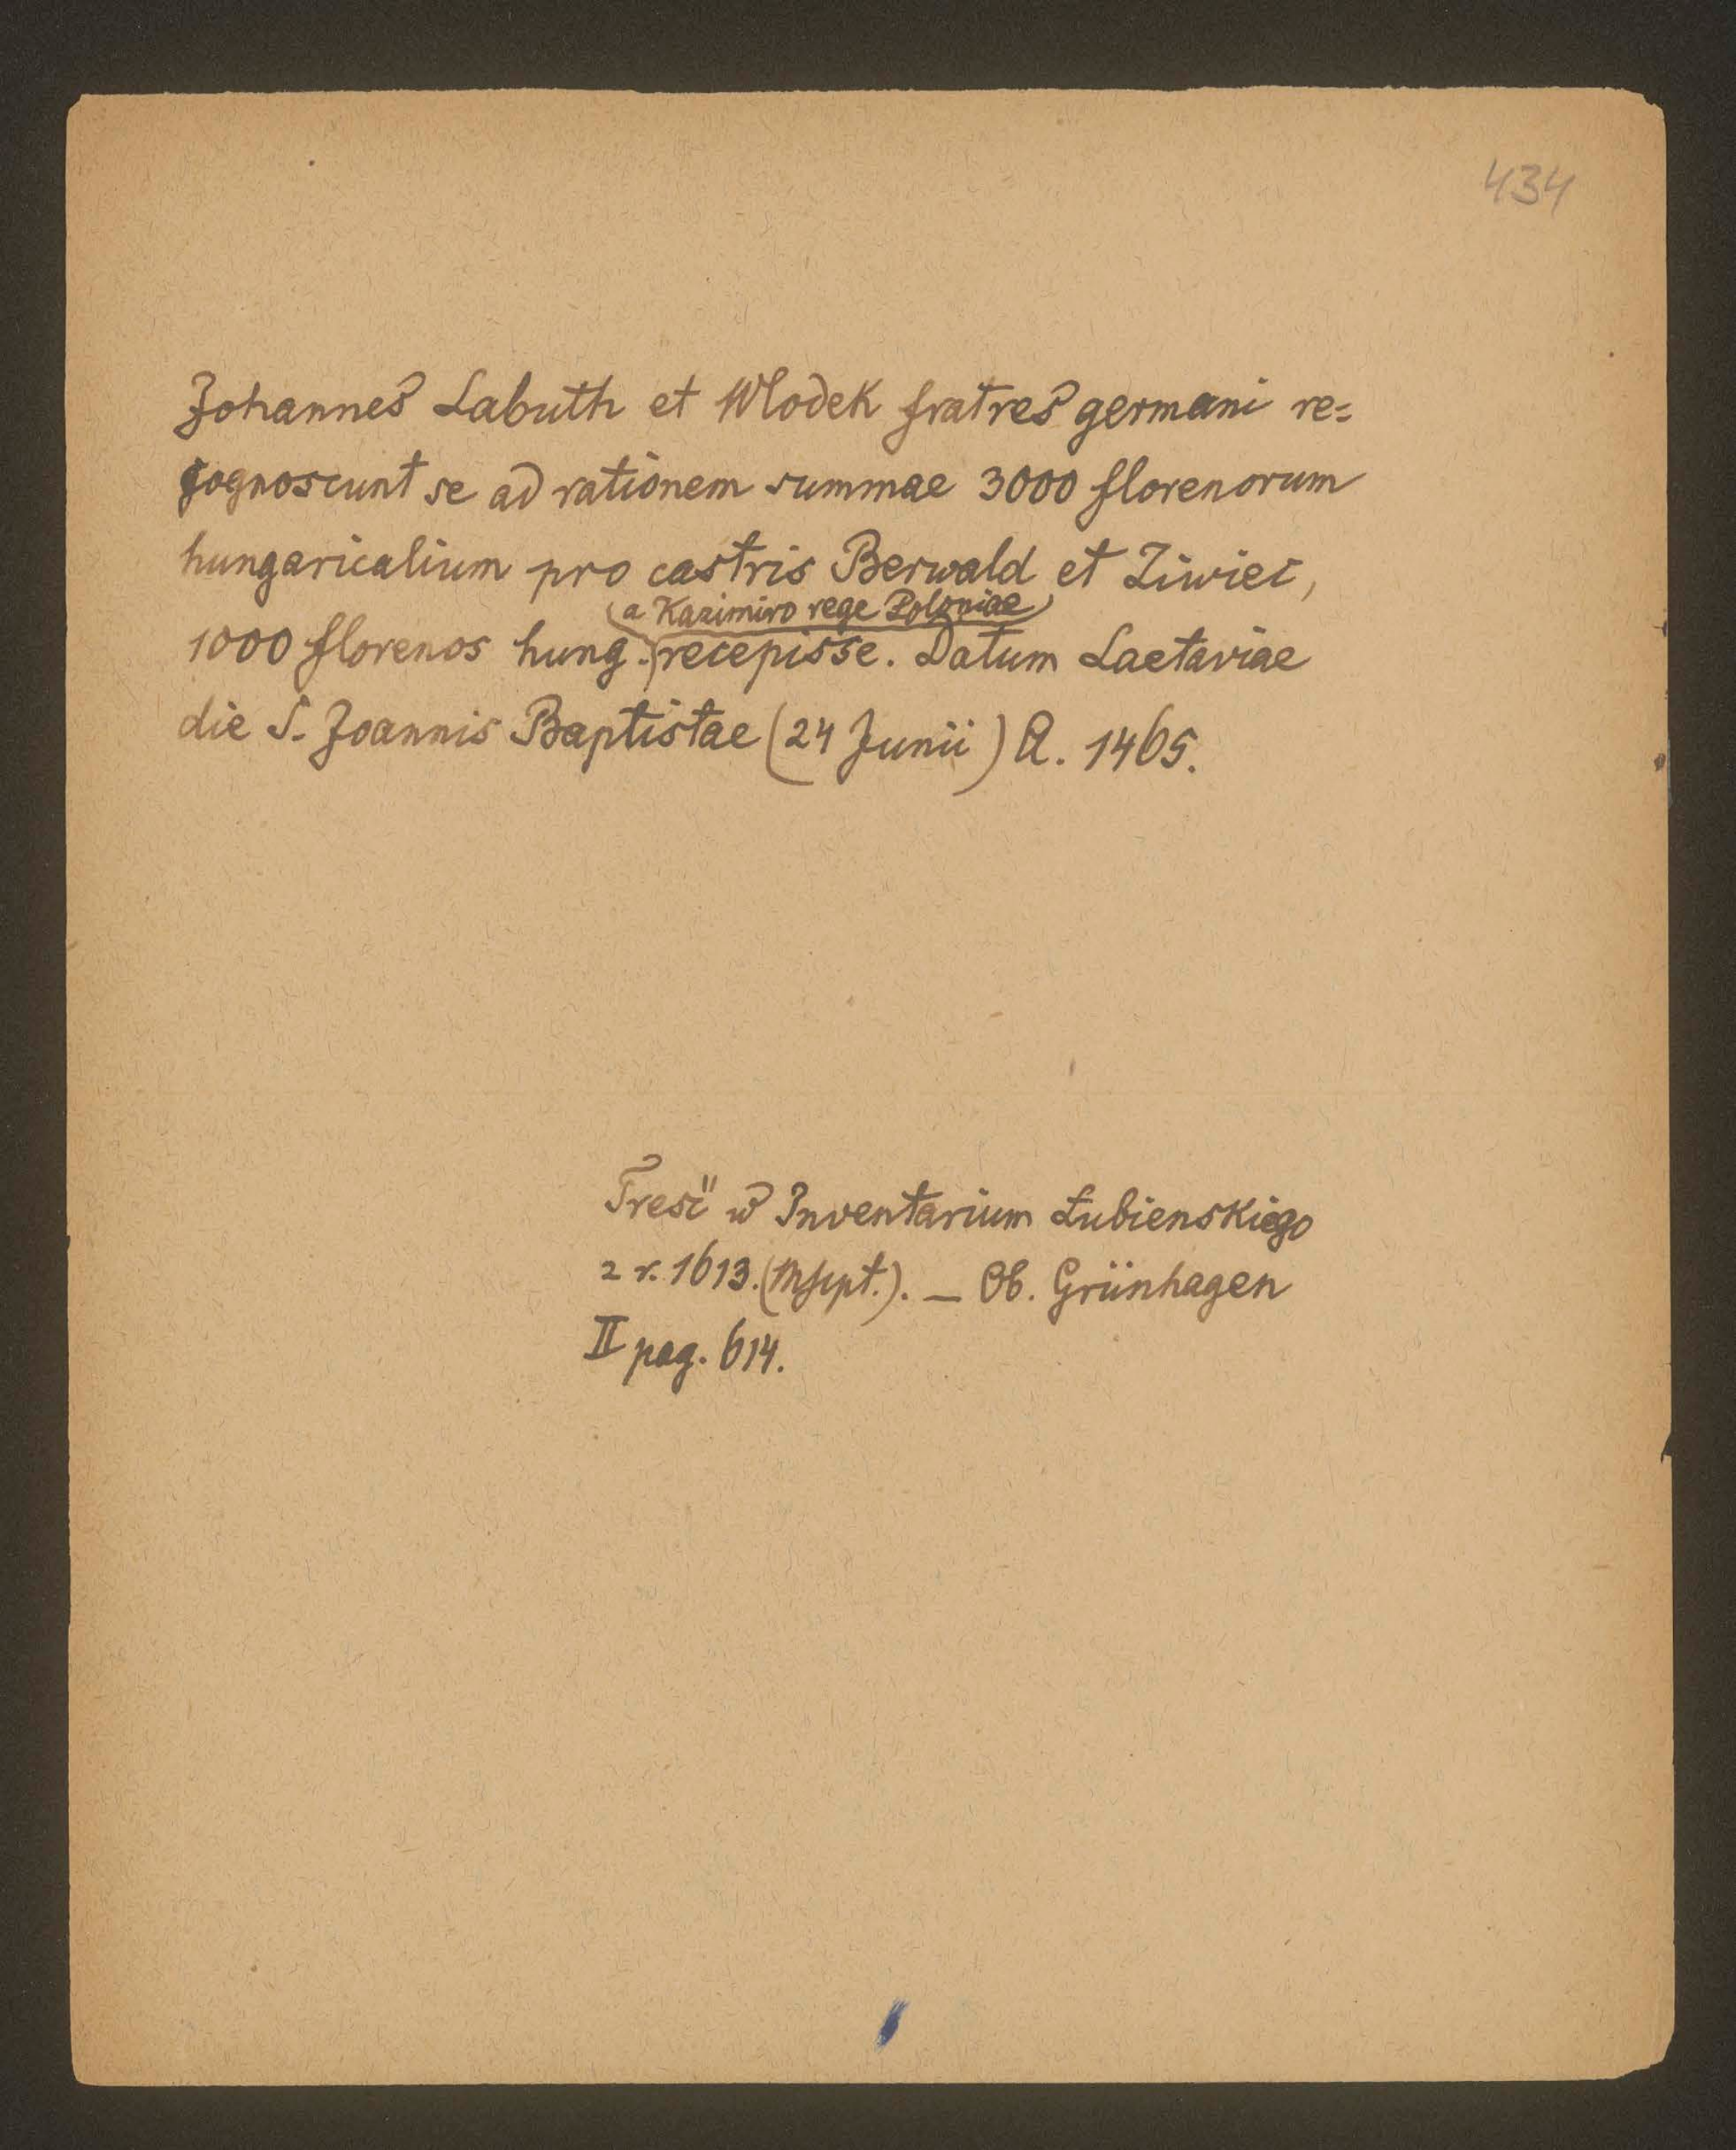 434
Johannes Labuth et Wlodek fratres germani re=
cognoscunt se ad rationem summae 3000 florenorum
hungaricalium pro castris Berwald et Ziwiec,
a Kazimiro rege Poloniae
1000 florenos hung. recepisse. Datum Laetaviae
die S. Joannis Baptistae (24 Junii) A. 1465.
Treść w Inventarium Łubienskiego
z r. 1613. (Mscpt.). — Ob. Grünhagen
II pag. 614.